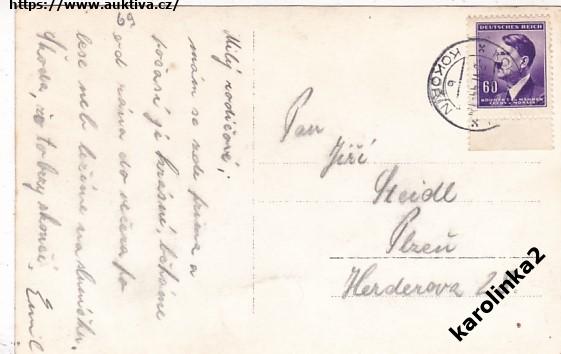 https://www.auktiva.cz/
Milý rodičové,
mám se zde prima a
počasí je krásné, běháme
od rána do večera po
lese nebo ležíme na sluníčku.
Škoda, že to brzy skončí. Emil
DEUTSCHES REICH
60
BÖHMEN U. MÄHREN
ČECHY A MORAVA
KOKOŘÍN
b
Pan
Jiří
Steidl
Plzeň
Herderova 2
karolinka2